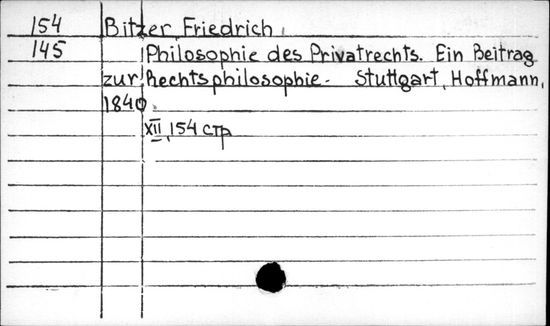 154 Bitzer, Friedrich
145 Philosophie des Privatrechts. Ein Beitrag
zur Rechtsphilosophie. Stuttgart, Hoffmann,
1840.
XII, 154 стр